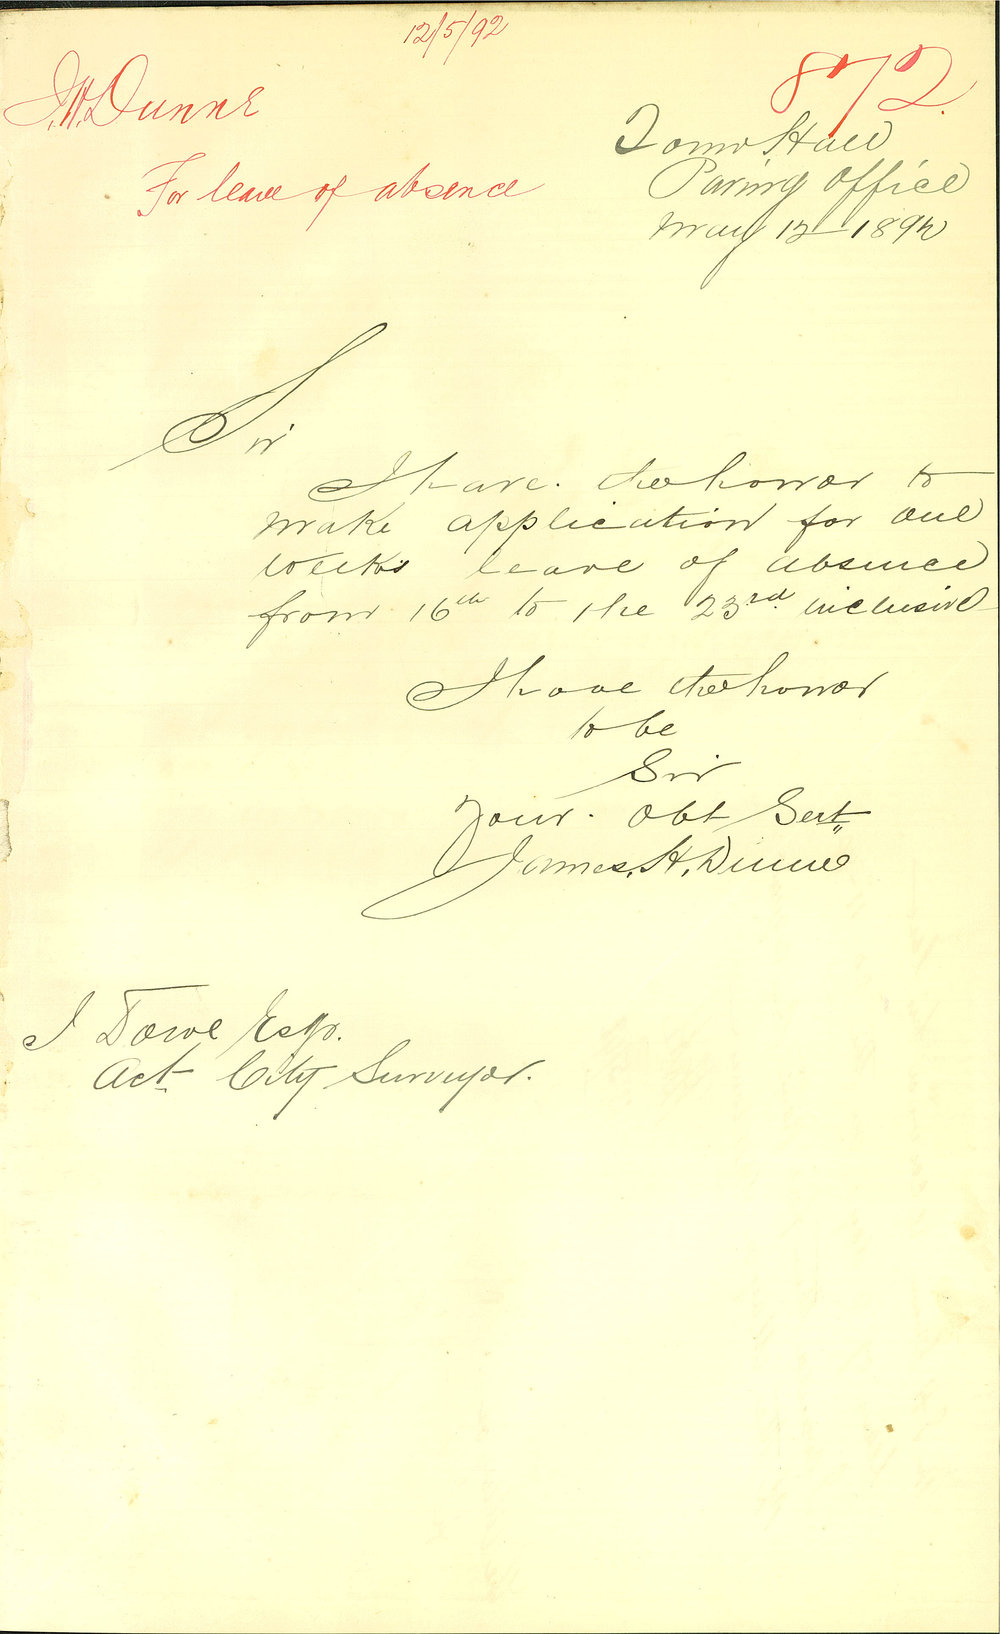 12/5/92
872
J. H. Dunne
For leave of absence
Town Hall
Paving Office
May 12 1892
Sir
I have the honor to
make application for one
weeks leave of absence
from 16th to the 23rd inclusive
I have the honor
to be
Sir
Your Obt Sert
James. H. Dunne
J Dowe Esqr.
Act City Surveyor.